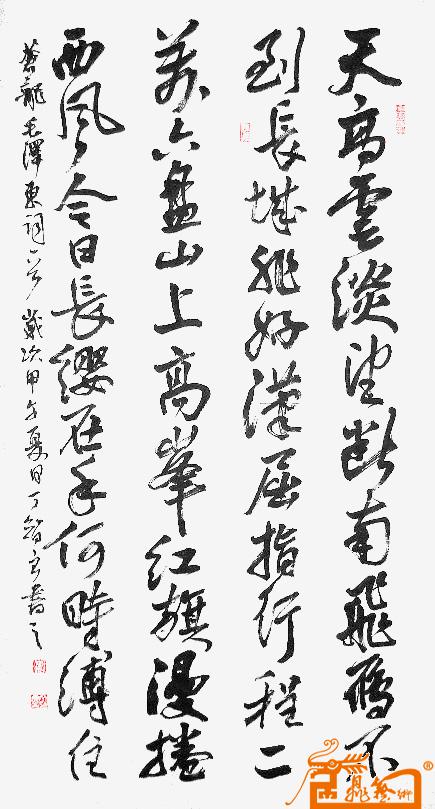 天高雲淡望斷南飛雁不
到長城非好漢屈指行程二
萬六盤山上高峰紅旗漫捲
西風今日長纓在手何時縛住
蒼龍毛澤東詞六盤山歲次甲午夏日丁智書之